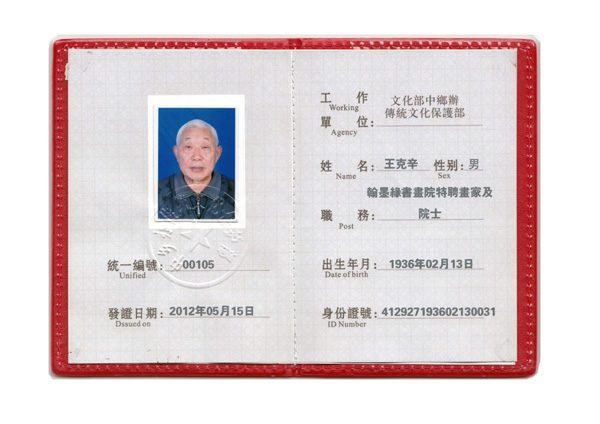 統一編號： 00105
Unified
發證日期： 2012年05月15日
Dssued on
工 作
Working
單 位：
Agency
文化部中鄉辦
傳統文化保護部
姓 名： 王克辛 性别：男
Name Sex
翰墨緣書畫院特聘畫家及
職 務： 院士
Post
出生年月： 1936年02月13日
Date of birth
身份證號： 412927193602130031
ID Number